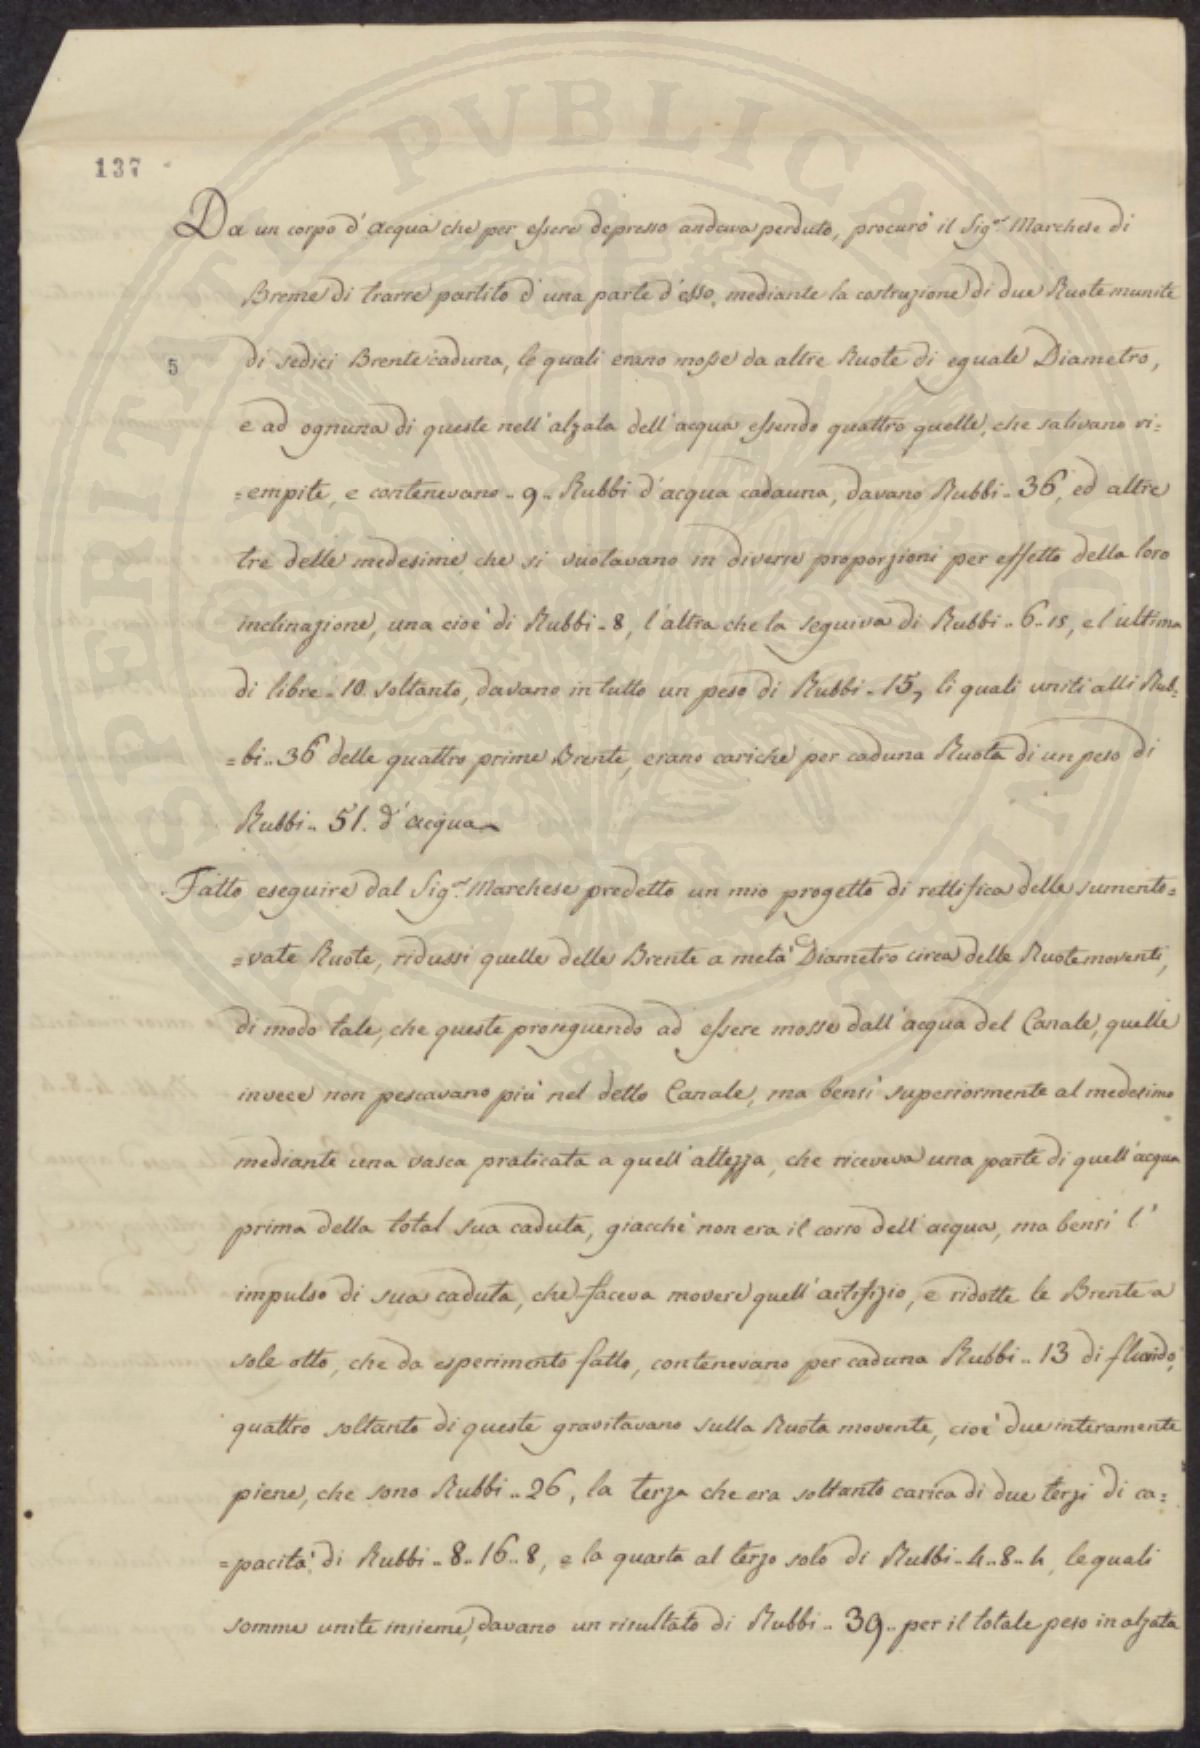 137
Da un corpo d'acqua che per essere depresso andava perduto, procurò il Sig.r Marchese di
Breme di trarre partito d'una parte d'esso, mediante la costruzione di due Ruote munite
5
di sedici Brente caduna, le quali erano mosse da altre Ruote di eguale Diametro,
e ad ognuna di queste nell'alzata dell'acqua essendo quattro quelle, che salivano ri=
=empite, e contenevano .. 9 .. Rubbi d'acqua cadauna, davano Rubbi .. 36, ed altre
tre delle medesime che si vuotavano in diverse proporzioni per effetto della loro
inclinazione, una cioè di Rubbi .. 8, l'altra che la seguiva di Rubbi .. 6 .. 15, e l'ultima
di libre .. 10 soltanto, davano in tutto un peso di Rubbi .. 15, li quali uniti alli Rub=
=bi .. 36 delle quattro prime Brente, erano cariche per caduna Ruota di un peso di
Rubbi .. 51. d'acqua
Fatto eseguire dal Sig.r Marchese predetto un mio progetto di rettifica delle summento=
=vate Ruote, ridussi quelle delle Brente a metà Diametro circa delle Ruote moventi,
di modo tale, che queste proseguendo ad essere mosse dall'acqua del Canale, quelle
invece non pescavano più nel detto Canale, ma bensì superiormente al medesimo
mediante una vasca praticata a quell'altezza, che riceveva una parte di quell'acqua
prima della total sua caduta, giacchè non era il corso dell'acqua, ma bensì l'
impulso di sua caduta, che faceva movere quell'artifizio, e ridotte le Brente a
sole otto, che da esperimento fatto, contenevano per caduna Rubbi .. 13 di fluido,
quattro soltanto di queste gravitavano sulla Ruota movente, cioè due interamente
piene, che sono Rubbi .. 26, la terza che era soltanto carica di due terzi di ca=
=pacità di Rubbi .. 8 .. 16 .. 8, e la quarta al terzo solo di Rubbi .. 4 .. 8 .. 4, le quali
somme unite insieme, davano un risultato di Rubbi .. 39 .. per il totale peso in alzata